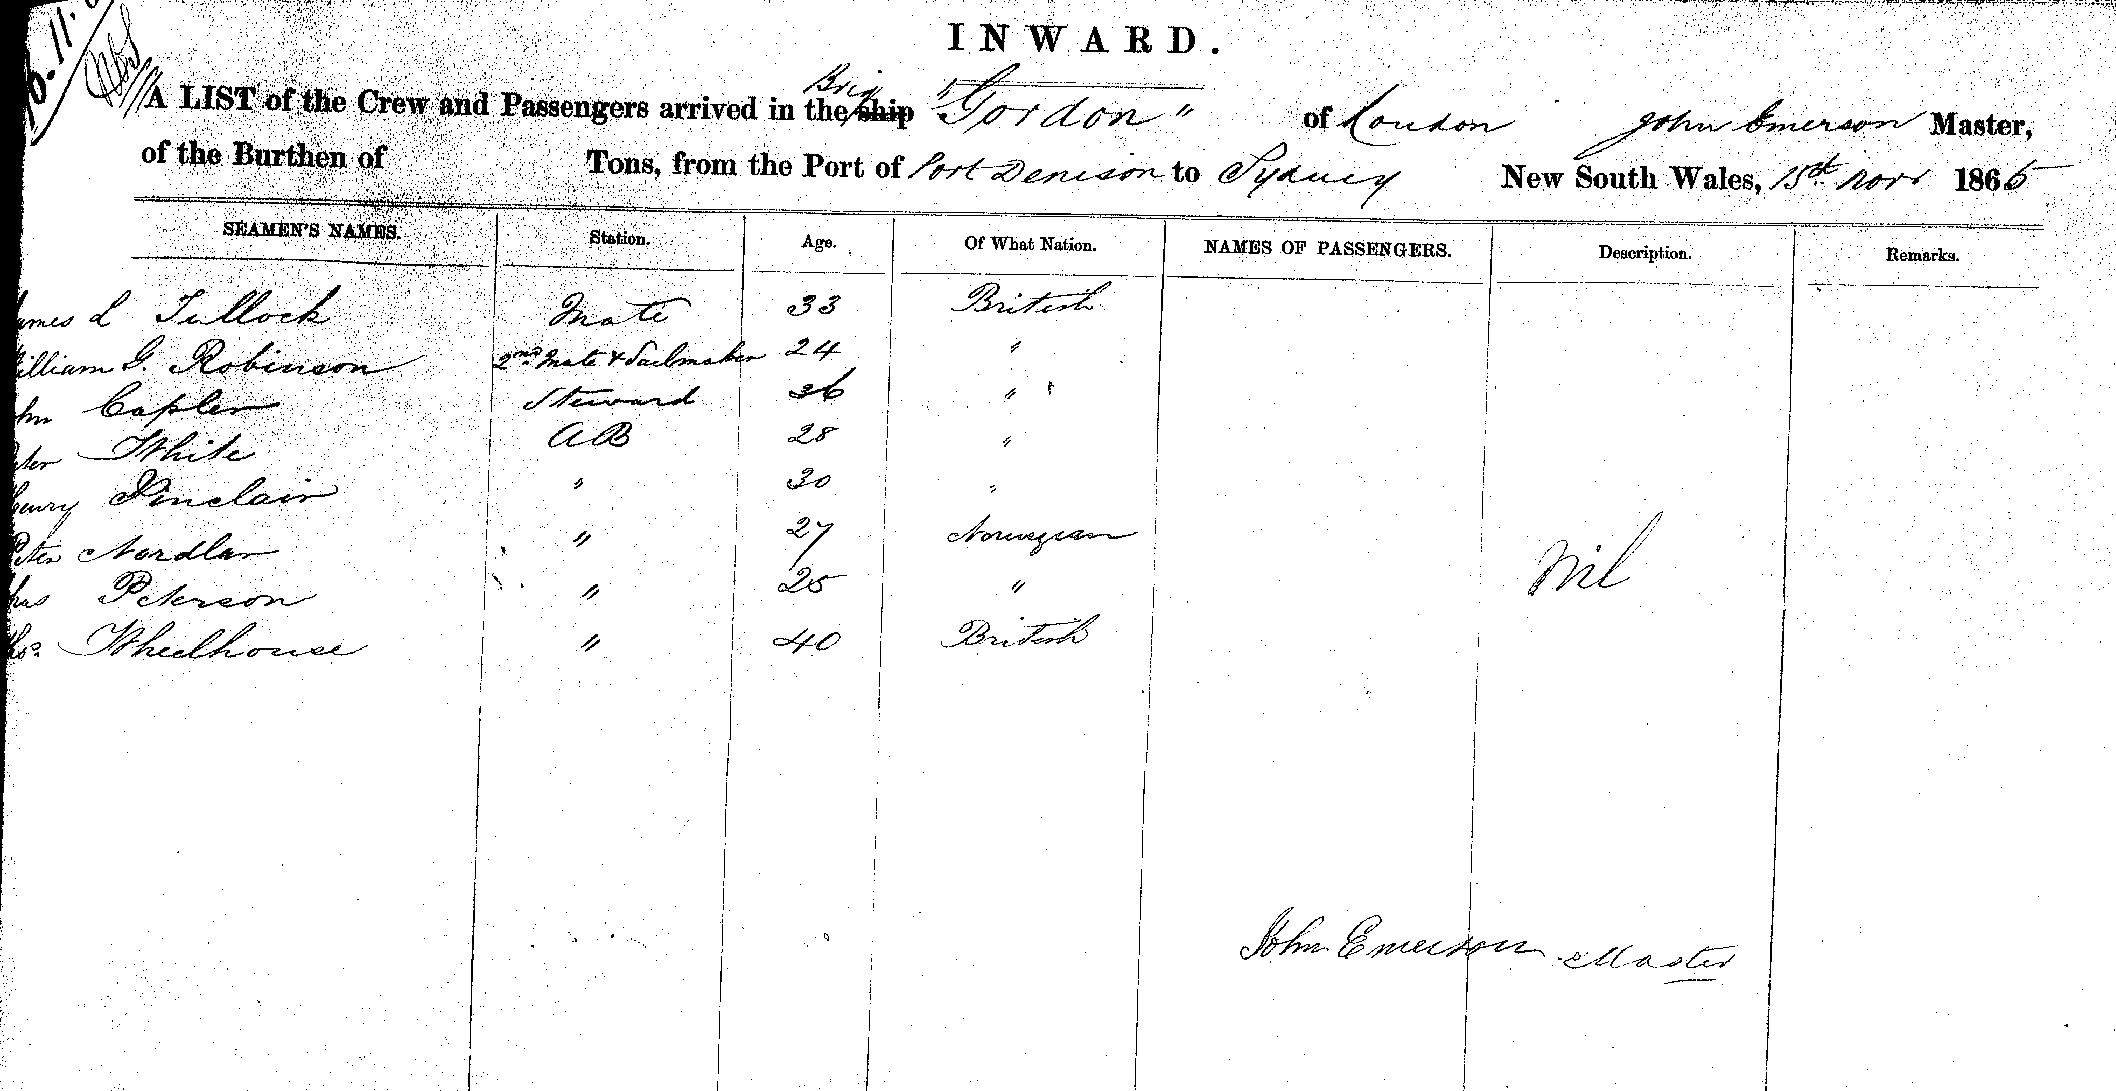 INWARD.
A LIST of the Crew and Passengers arrived in the Brig ship "Gordon" of London John Emerson Master,
of the Burthen of Tons, from the Port of Port Denison to Sydney New South Wales, 15th Novr 1865
SEAMEN'S NAMES. Station. Age. Of What Nation. NAMES OF PASSENGERS. Description. Remarks.
ames L Tullock Mate 33 British
illiam G. Robinson 2nd Mate & Sailmaker 24 "
ohn Caplen Steward 36 "
eter White AB 28 "
Henry Sinclair " 30 "
Peter Nordlan " 27 Norwegian
Peterson " 25 "
Wheelhouse " 40 British
Nil
John Emerson Master